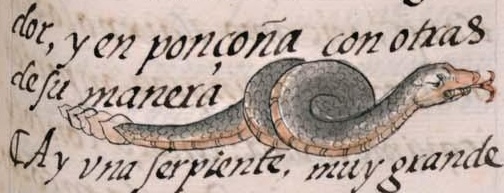 dor, y en ponçoña con otras
de su manera
¶Ay vna serpiente, muy grande